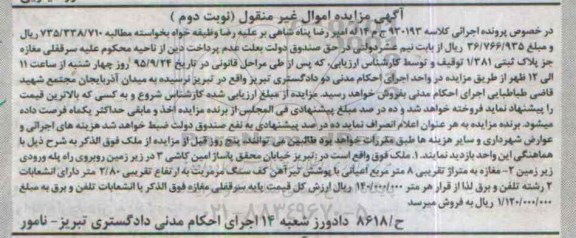 آگهی مزایده اموال غیر منقول (نوبت دوم)
در خصوص پرونده اجرائی کلاسه ۹۳۰۱۹۳ ج م ۱۴ له امیر رضا پناه شاهی بر علیه رضا وظیفه خواه بخواسته مطالبه ۷۳۵/۳۳۸/۷۱۰ ریال
و مبلغ ۳۶/۷۶۶/۹۳۵ ریال از بابت نیم عشردولتی در حق صندوق دولت بعلت عدم پرداخت دین از ناحیه محکوم علیه سرقفلی مغازه
جزء پلاک ثبتی ۱/۳۸۱ توقیف و توسط کارشناس ارزیابی، که پس از طی مراحل قانونی در تاریخ ۹۵/۹/۲۴ روز چهار شنبه از ساعت ۱۱
الی ۱۲ ظهر از طریق مزایده در واحد اجرای احکام مدنی دو دادگستری تبریز واقع در تبریز نرسیده به میدان آذربایجان مجتمع شهید
قاضی طباطبایی اجرای احکام مدنی بفروش خواهد رسید. مزایده از مبلغ ارزیابی شده کارشناس شروع و به کسی که بالاترین قیمت
را پیشنهاد نماید فروخته خواهد شد و ده در صد مبلغ پیشنهادی فی المجلس از برنده مزایده اخذ و مابقی حداکثر یکماه فرصت داده
میشود. برنده مزایده به هر عنوان اعلام انصراف نماید ده در صد پیشنهادی به نفع صندوق دولت ضبط خواهد شد هزینه های اجرائی و
عوارض شهرداری و سایر هزینه ها طبق مقررات خواهد بود طالبین می توانند، پنج روز قبل از مزایده از ملک فوق الذکر به شرح ذیل با
هماهنگی این واحد بازدید نمایند. ۱. ملک فوق واقع است در: تبریز خیابان محقق پاساژ امین کاشی ۳ در زیر زمین روبروی راه پله ورودی
زیر زمین ۲- مغازه به متراژ تقریبی ۸ متر مربع اعیانی با پوشش تیرآهن کف سنگ مرمریت به ارتفاع تقریبی ۲/۸۰ متر دارای انشعابات
۲ رشته تلفن و برق لذا از قرار هر متر ۱۴۰/۰۰۰/۰۰۰ ریال ارزش کل قیمت پایه سرقفلی مغازه فوق الذکر با انشعابات تلفن و برق به مبلغ
۱/۱۲۰/۰۰۰/۰۰۰ ریال به فروش میرسد
ح/۸۶۱۸ دادورز شعبه ۱۴ اجرای احکام مدنی دادگستری تبریز- نامور